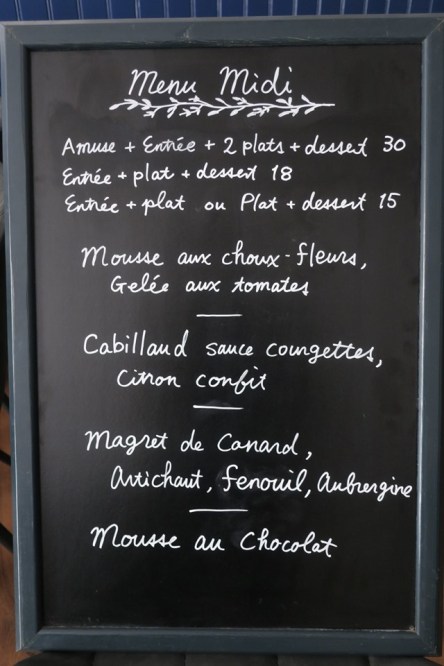 Menu Midi
Amuse + Entrée + 2 plats + dessert 30
Entrée + plat + dessert 18
Entrée + plat ou Plat + dessert 15
Mousse aux choux-fleurs,
Gelée aux tomates
Cabillaud sauce courgettes,
Citron confit
Magret de Canard,
Artichaut, fenouil, Aubergine
Mousse au Chocolat